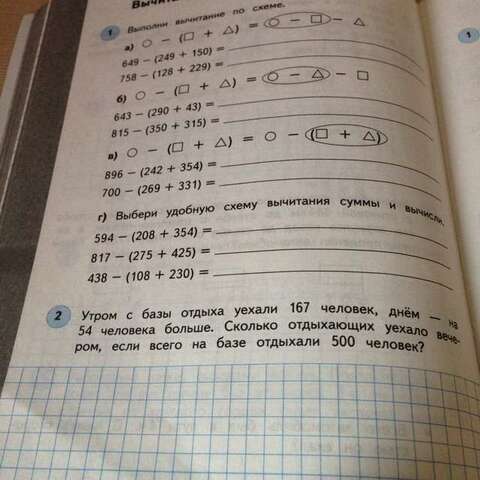 1 Выполни вычитание по схеме.
а) ○ − (□ + △) = ○ − □ − △
649 − (249 + 150) =
758 − (128 + 229) =
б) ○ − (□ + △) = ○ − △ − □
643 − (290 + 43) =
815 − (350 + 315) =
в) ○ − (□ + △) = ○ − (□ + △)
896 − (242 + 354) =
700 − (269 + 331) =
г) Выбери удобную схему вычитания суммы и вычисли.
594 − (208 + 354) =
817 − (275 + 425) =
438 − (108 + 230) =
2 Утром с базы отдыха уехали 167 человек, днём — на
54 человека больше. Сколько отдыхающих уехало вече-
ром, если всего на базе отдыхали 500 человек?
1